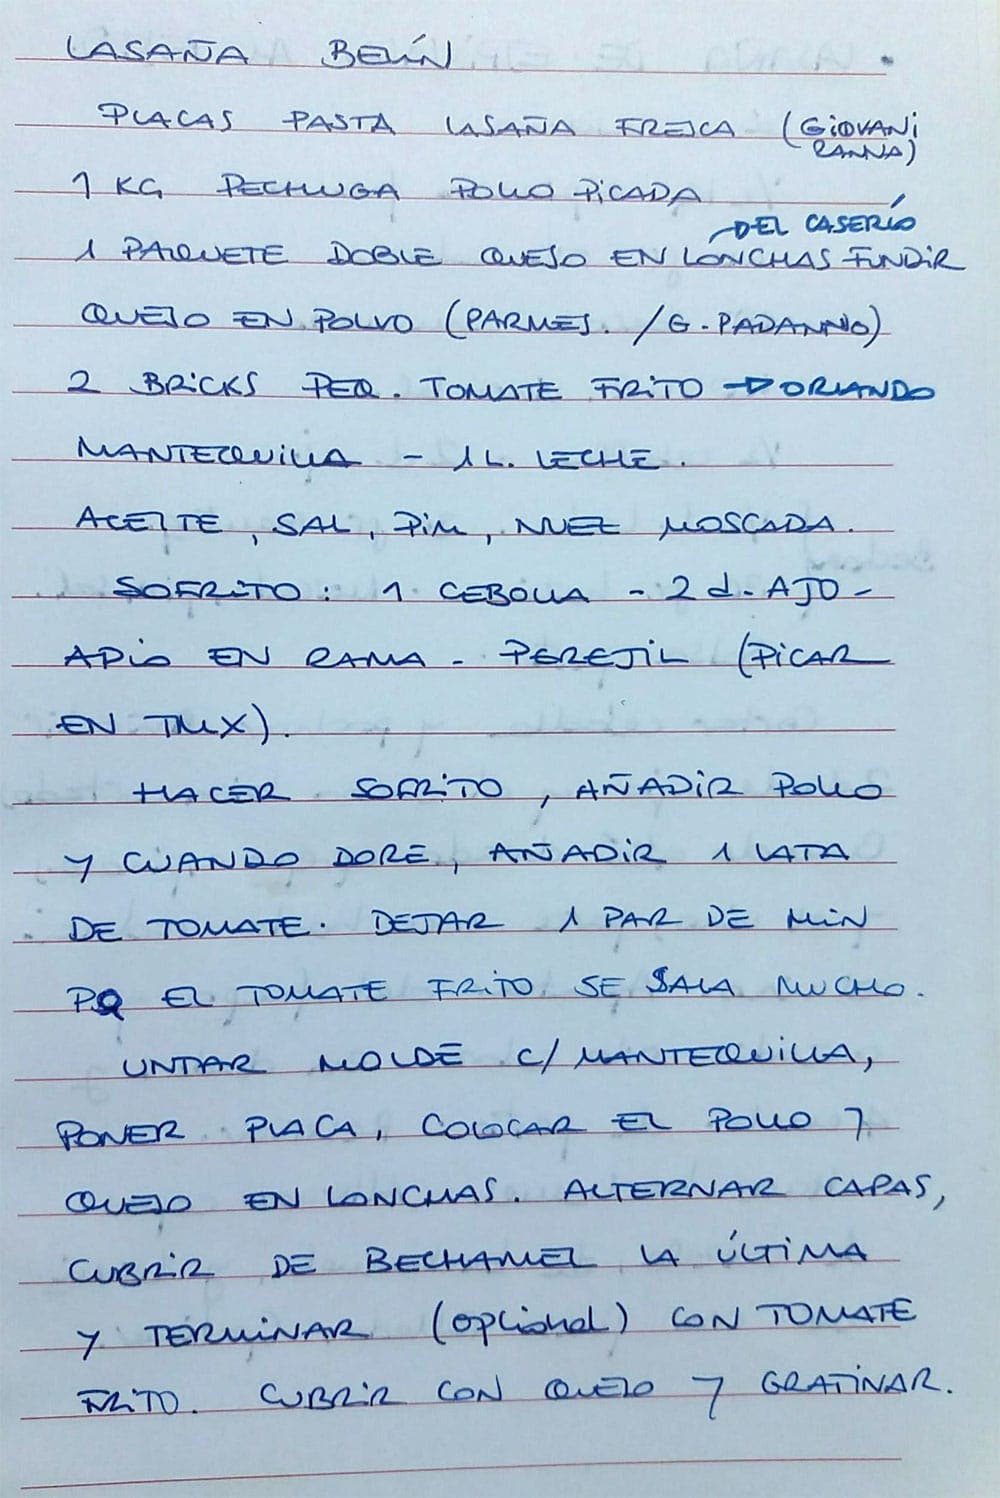 LASAÑA BELÍN
PLACAS PASTA LASAÑA FRESCA (GIOVANI
RANNA)
1 KG PECHUGA POLLO PICADA
→ DEL CASERÍO
1 PAQUETE DOBLE QUESO EN LONCHAS FUNDIR
QUESO EN POLVO (PARMES. / G. PADANNO)
2 BRICKS PEQ. TOMATE FRITO → ORLANDO
MANTEQUILLA - 1 L. LECHE.
ACEITE, SAL, PIM, NUEZ MOSCADA.
SOFRITO: 1 CEBOLLA - 2 d. AJO -
APIO EN RAMA - PEREJIL (PICAR
EN TMX).
HACER SOFRITO, AÑADIR POLLO
Y CUANDO DORE, AÑADIR 1 LATA
DE TOMATE. DEJAR 1 PAR DE MIN
PQ EL TOMATE FRITO SE SALA MUCHO.
UNTAR MOLDE C/ MANTEQUILLA,
PONER PLACA, COLOCAR EL POLLO Y
QUESO EN LONCHAS. ALTERNAR CAPAS,
CUBRIR DE BECHAMEL LA ÚLTIMA
Y TERMINAR (opcional) CON TOMATE
FRITO. CUBRIR CON QUESO Y GRATINAR.